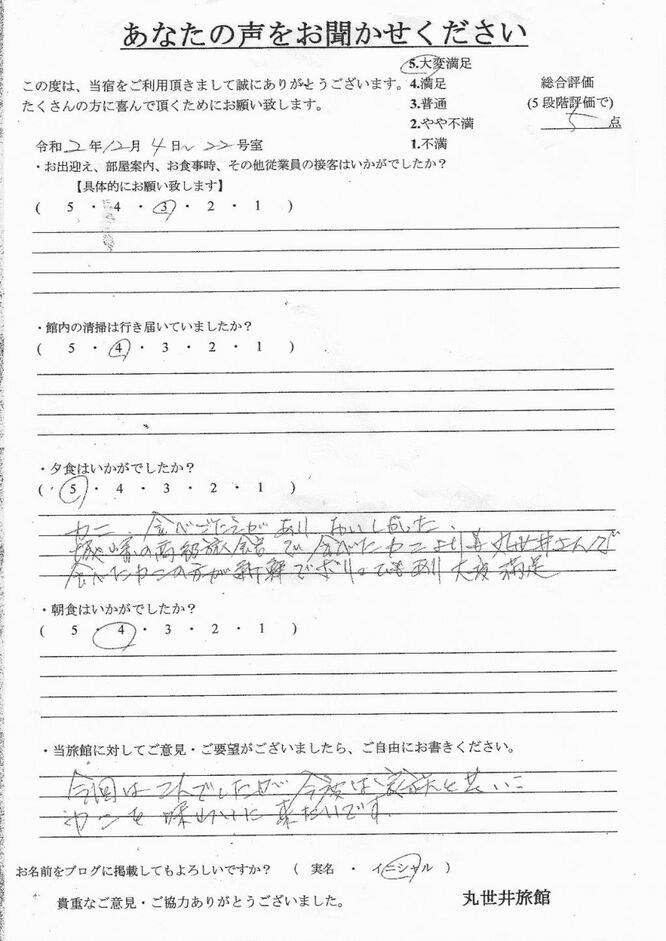 あなたの声をお聞かせください
5.大変満足
この度は、当宿をご利用頂きまして誠にありがとうございます。 4.満足 総合評価
たくさんの方に喜んで頂くためにお願い致します。 3.普通 (5段階評価で)
2.やや不満 5 点
令和2年12月4日~22号室 1.不満
・お出迎え、部屋案内、お食事時、その他従業員の接客はいかがでしたか?
【具体的にお願い致します】
( 5 ・ 4 ・ 3 ・ 2 ・ 1 )
・館内の清掃は行き届いていましたか?
( 5 ・ 4 ・ 3 ・ 2 ・ 1 )
・夕食はいかがでしたか?
( 5 ・ 4 ・ 3 ・ 2 ・ 1 )
カニ、食べごたえがあり おいしかった、
城崎の高級旅館で食べたカニよりも丸世井さんで
食べたカニの方が新鮮でボリュームもあり大変満足
・朝食はいかがでしたか?
( 5 ・ 4 ・ 3 ・ 2 ・ 1 )
・当旅館に対してご意見・ご要望がございましたら、ご自由にお書きください。
今回は でしたが 今度は家族と共に
カニを味わいに来たいです。
お名前をブログに掲載してもよろしいですか? ( 実名 ・ イニシャル )
貴重なご意見・ご協力ありがとうございました。 丸世井旅館